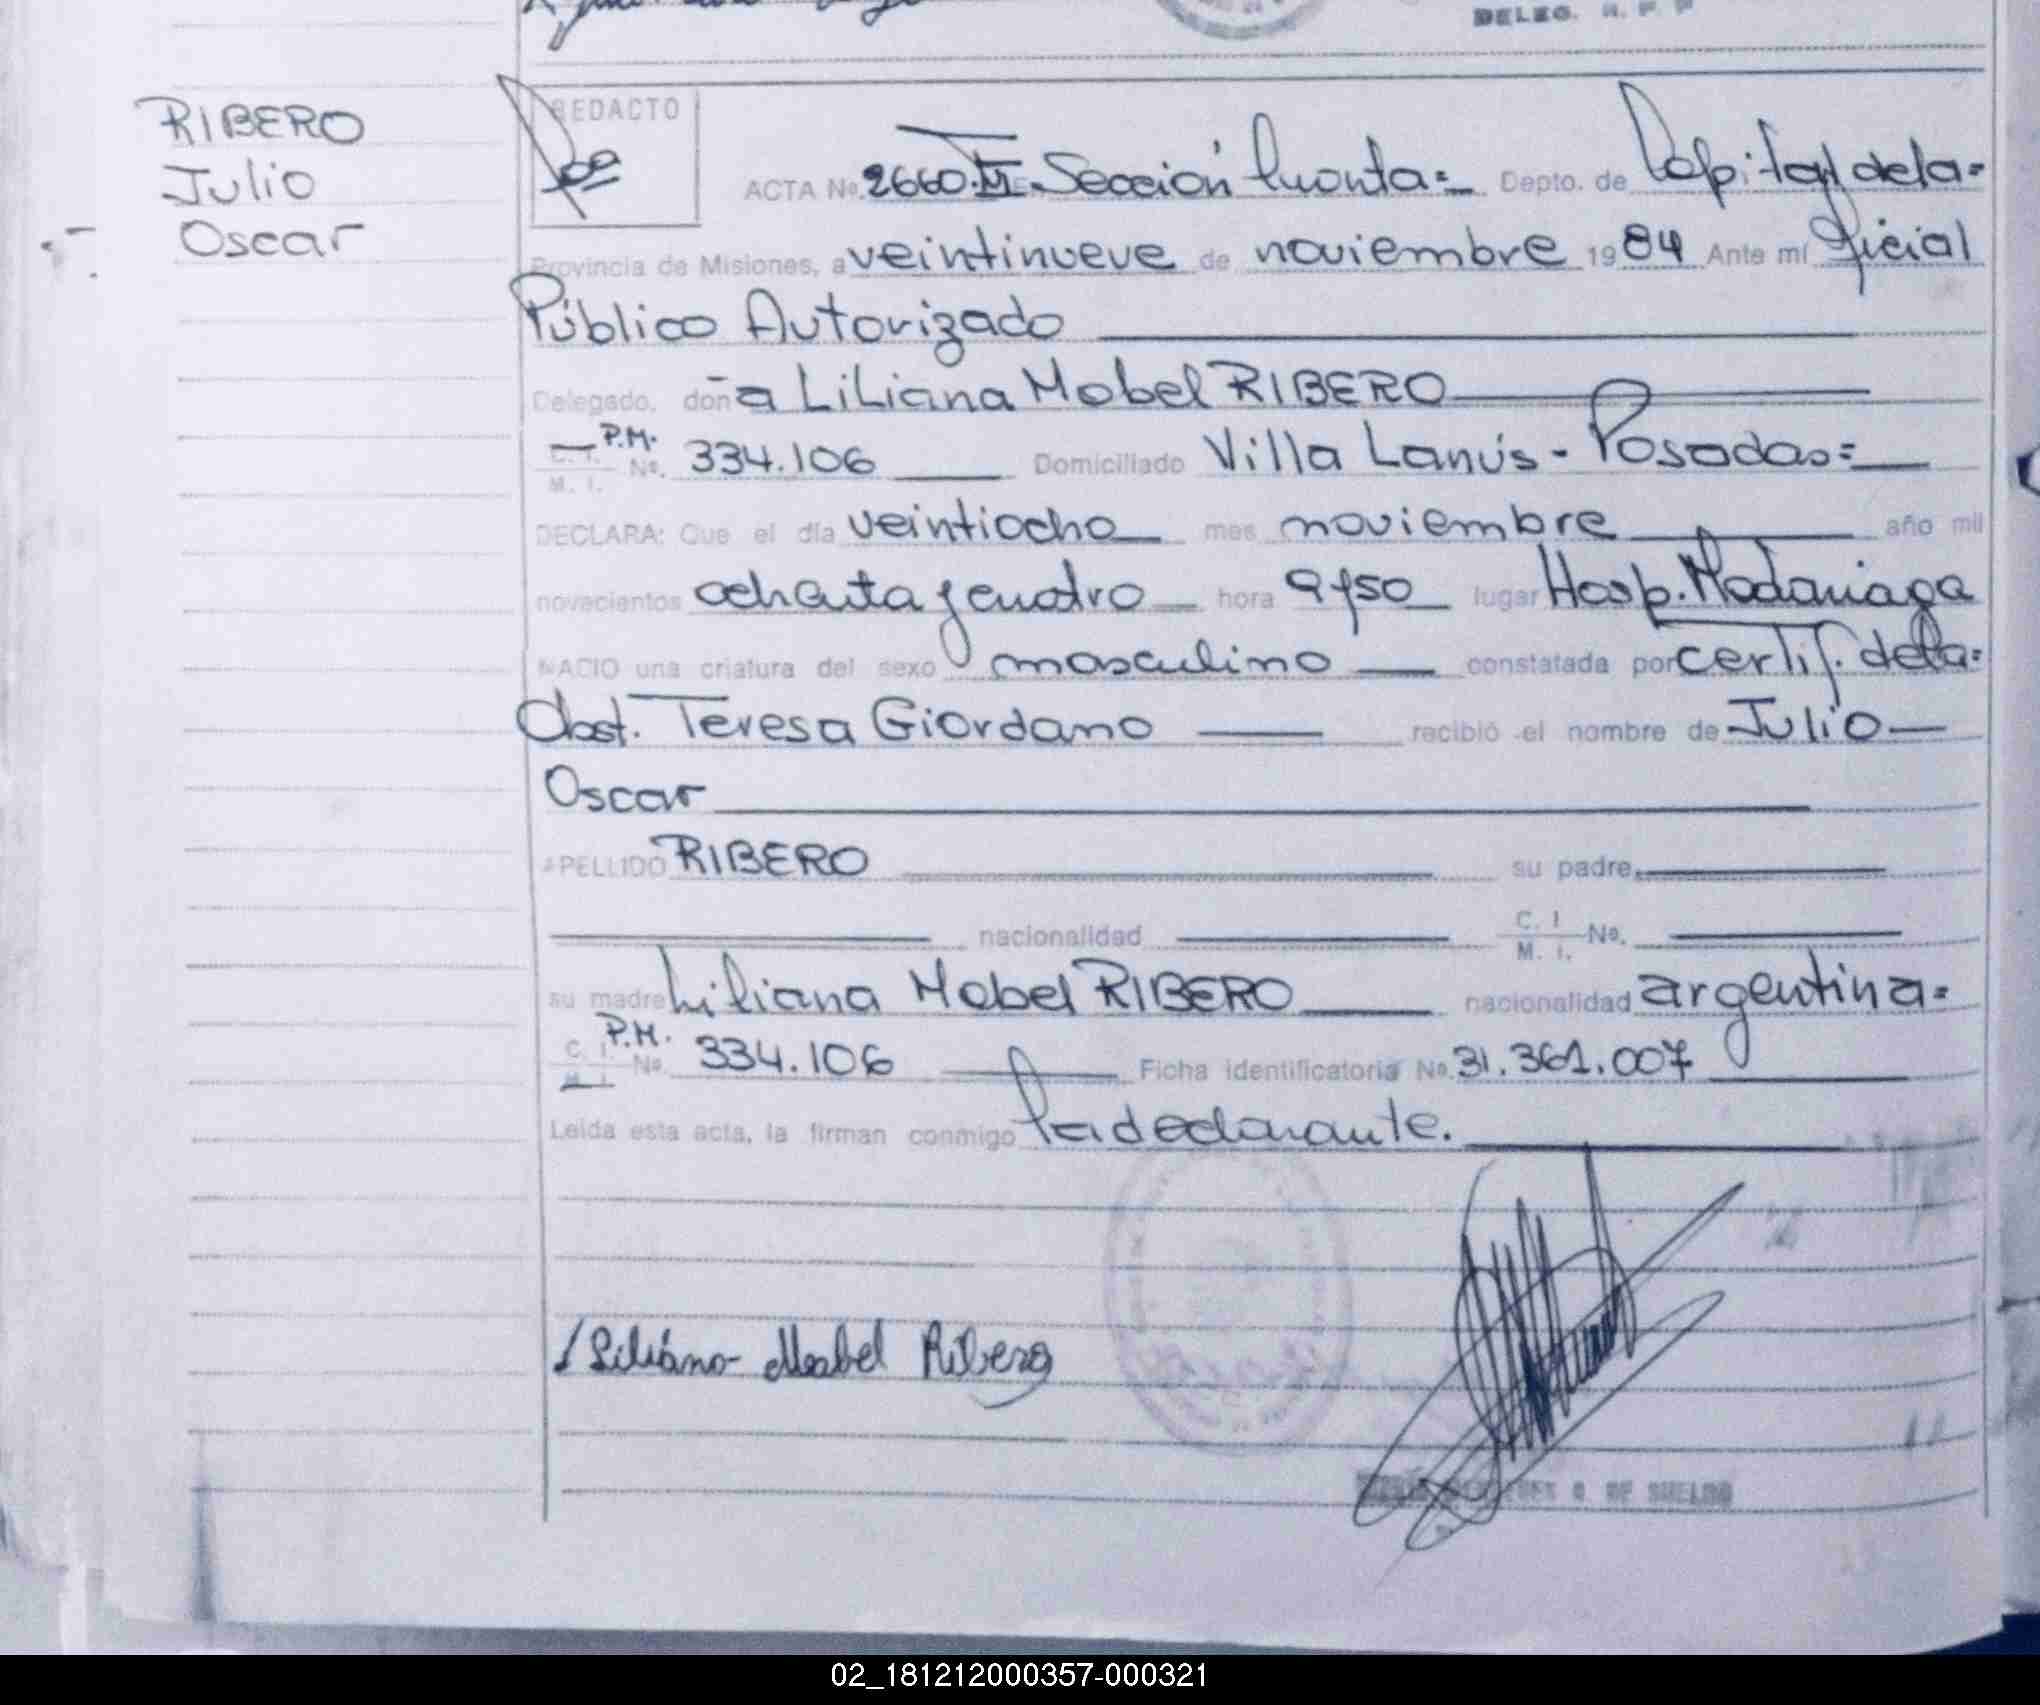 DELEG. R. P. P
RIBERO
Julio
Oscar
REDACTO
ACTA No. 2660. T. VI. Sección Cuarta= Depto. de Capital de la=
Provincia de Misiones, a veintinueve de noviembre 1984 Ante mí Oficial
Público Autorizado
Delegado, doña Liliana Mabel RIBERO
C. I. M. I. P.M. No. 334.106 Domiciliado Villa Lanús - Posadas=
DECLARA: Que el día veintiocho mes noviembre año mil
novecientos ochenta y cuatro hora 9 y 50 lugar Hosp. Madariaga
NACIO una criatura del sexo masculino constatada por certif. de la=
Obst. Teresa Giordano recibió el nombre de Julio
Oscar
APELLIDO RIBERO su padre
nacionalidad C. I. M. I. No.
su madre Liliana Mabel RIBERO nacionalidad argentina=
C. I. M. I. P.M. No. 334.106 Ficha identificatoria No. 31.361.007
Leída esta acta, la firman conmigo la declarante.
Liliana Mabel Ribero
DE SUELDO
02_181212000357-000321